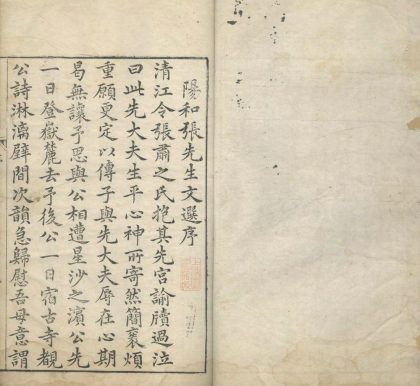 陽和張先生文選序
清江令張肅之氏抱其先宮諭牘過泣
曰此先大夫生平心神所寄然簡袠煩
重願更定以傳子與先大夫辱在心期
曷無讓予思與公相遭星沙之濱公先
一日登嶽麓去予後公一日宿古寺觀
公詩淋漓壁間次韻急歸慰吾母意謂